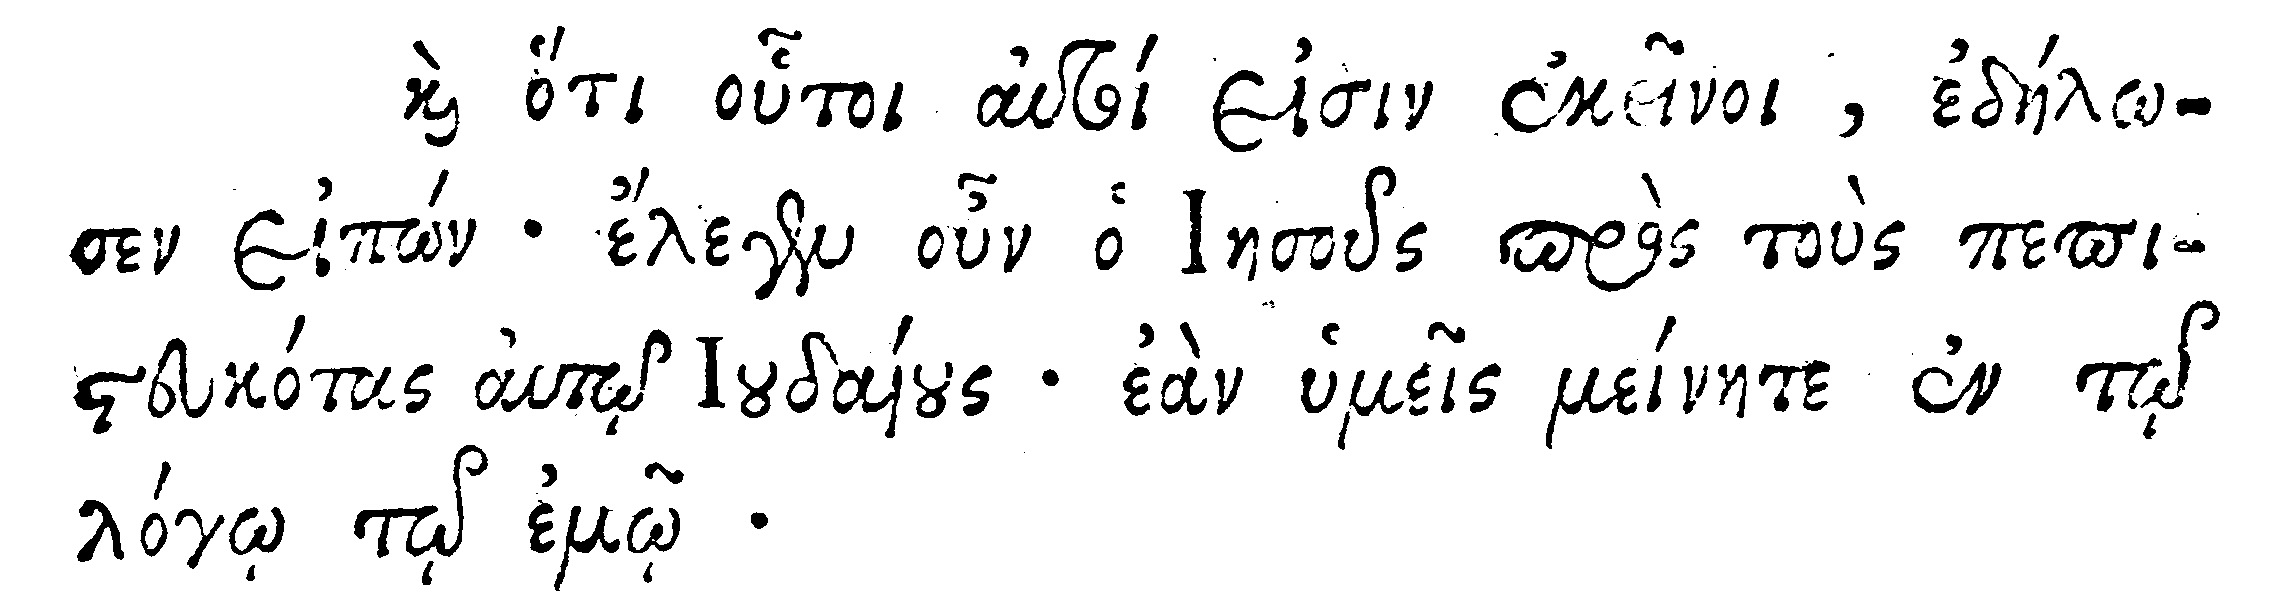 καὶ ὅτι οὗτοι αὐτοί εἰσιν ἐκεῖνοι, ἐδήλω-
σεν εἰπών· ἔλεγεν οὖν ὁ Ιησοῦς πρὸς τοὺς πεπι-
στευκότας αὐτῷ Ιουδαίους· ἐὰν ὑμεῖς μείνητε ἐν τῷ
λόγῳ τῷ ἐμῷ·